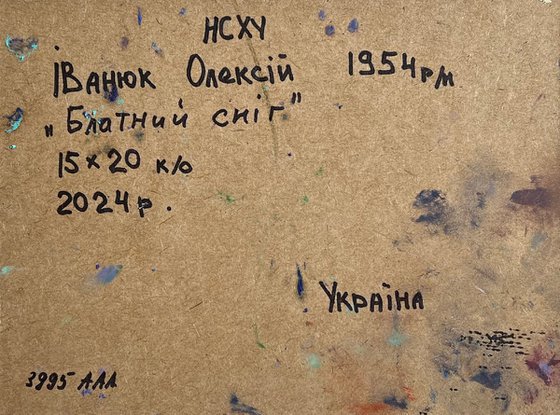 НСХУ
Іванюк Олексій 1954 р/м
„Блатний сніг"
15×20 к/о
2024 р.
Україна
3995 АЛЛ